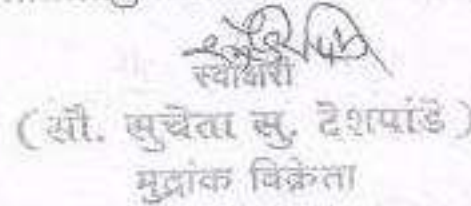 स्वाक्षरी
( सौ. सुचेता सु. देशपांडे )
मुद्रांक विक्रेता